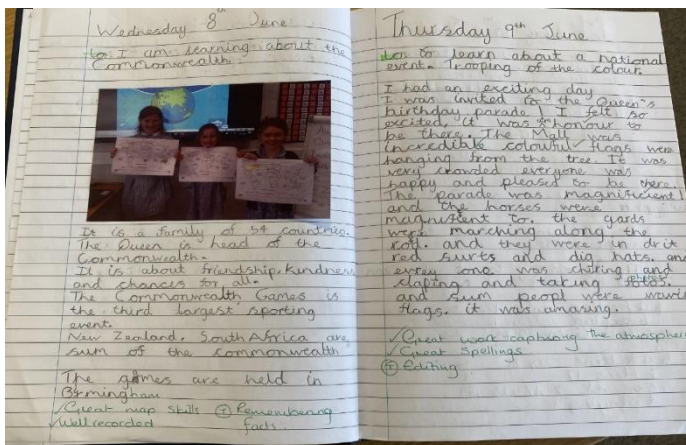 Wednesday 8th June
Lo I am learning about the
Commonwealth.
It is a family of 54 countries.
The Queen is head of the
Commonwealth.
It is about friendship, kindness
and chances for all.
The Commonwealth Games is
the third largest sporting
event.
New Zealand. South Africa are
sum of the commonwealth
The games are held in
Birmingham
✓Great map skills Ⓣ Remembering
✓Well recorded facts.
Thursday 9th June
to learn about a national
event. Trooping of the colour.
I had an exciting day
I was invited to the Queen's
birthday parade I felt so
excited, it was honour to
be there. The Mall was
incredible colourful flags were
hanging from the tree. It was
very crowded everyone was
happy and pleased to be there.
The parade was magnificent!
and the horses were
to. the gards
were marching along the
rod. and they were in
red surts and dig hats. and
evrey one was chiring and
claping and taking fotos. photos
and sum peopl were
flags. it was amasing.
✓Great work capturing the atmosphere
✓Great spellings
Ⓣ Editing